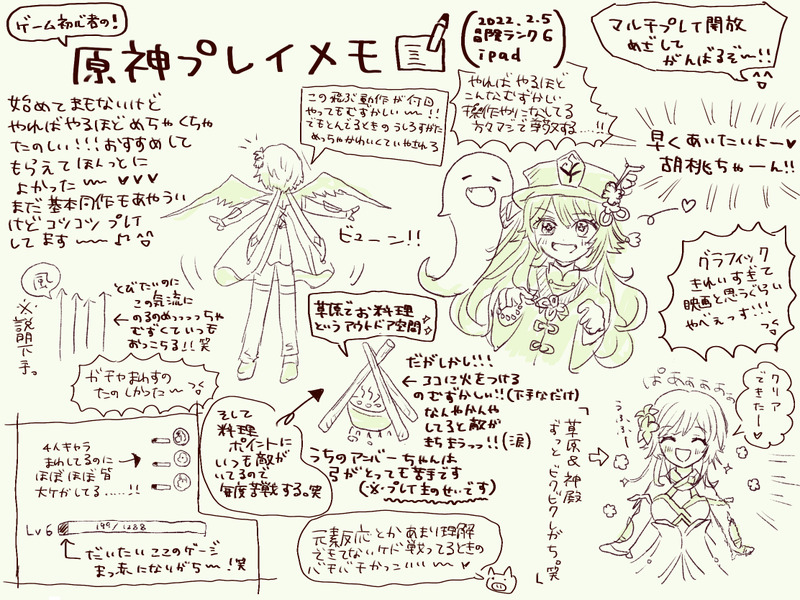 ゲーム初心者の!
原神プレイメモ
2022.2.5
冒険ランク6
ipad
マルチプレイ開放
めざして
がんばるぞ〜!!
始めてまもないけど
やればやるほどめちゃくちゃ
たのしい!!!おすすめして
もらえてほんっとに
よかった〜♥♥♥
まだ基本動作もあやうい
けどコツコツプレイ
してます〜♪
この飛ぶ動作が何回
やってもむずかしい〜!!
でもとんでるときのうしろすがた
めっちゃかわいくていやされる
やればやるほど
こんなむずかしい
操作やになしてる
方々マジで尊敬する....!!
早くあいたいよー♥
胡桃ちゃーん!!
ビューン!!
グラフィック
きれいすぎて
映画と思うぐらい
やべぇっす!!!
風
※説明下手。
とびたいのに
この気流に
←のるのめっっっっちゃ
むずくていつも
おっこちる!!笑
草原でお料理
というアウトドア空間
ガチャまわすの
たのしかった〜
だがしかし!!!
←ココに火をつける
のむずかしい!!(下手なだけ)
なんやかんや
してると敵が
きちまうっっ!!(涙)
そして
料理
ポイントに
いつも敵が
いてるので
毎度苦戦する。笑
うちのアンバーちゃんは
弓がとっても苦手です
(※プレイ主のせいです)
4人キャラ
まわしてるのに→
ほぼほぼ皆
大ケガしてる......!!
Lv6
149/1288
だいたいココのゲージ
まっ赤になりがち〜!笑
元素反応とかあまり理解
できてないケド戦ってるときの
バチバチかっこいい〜♥
「草原&神殿
ずっとビクビクしがち。笑」
ぱあぁぁぁぁ
クリア
できたー!
うふふー